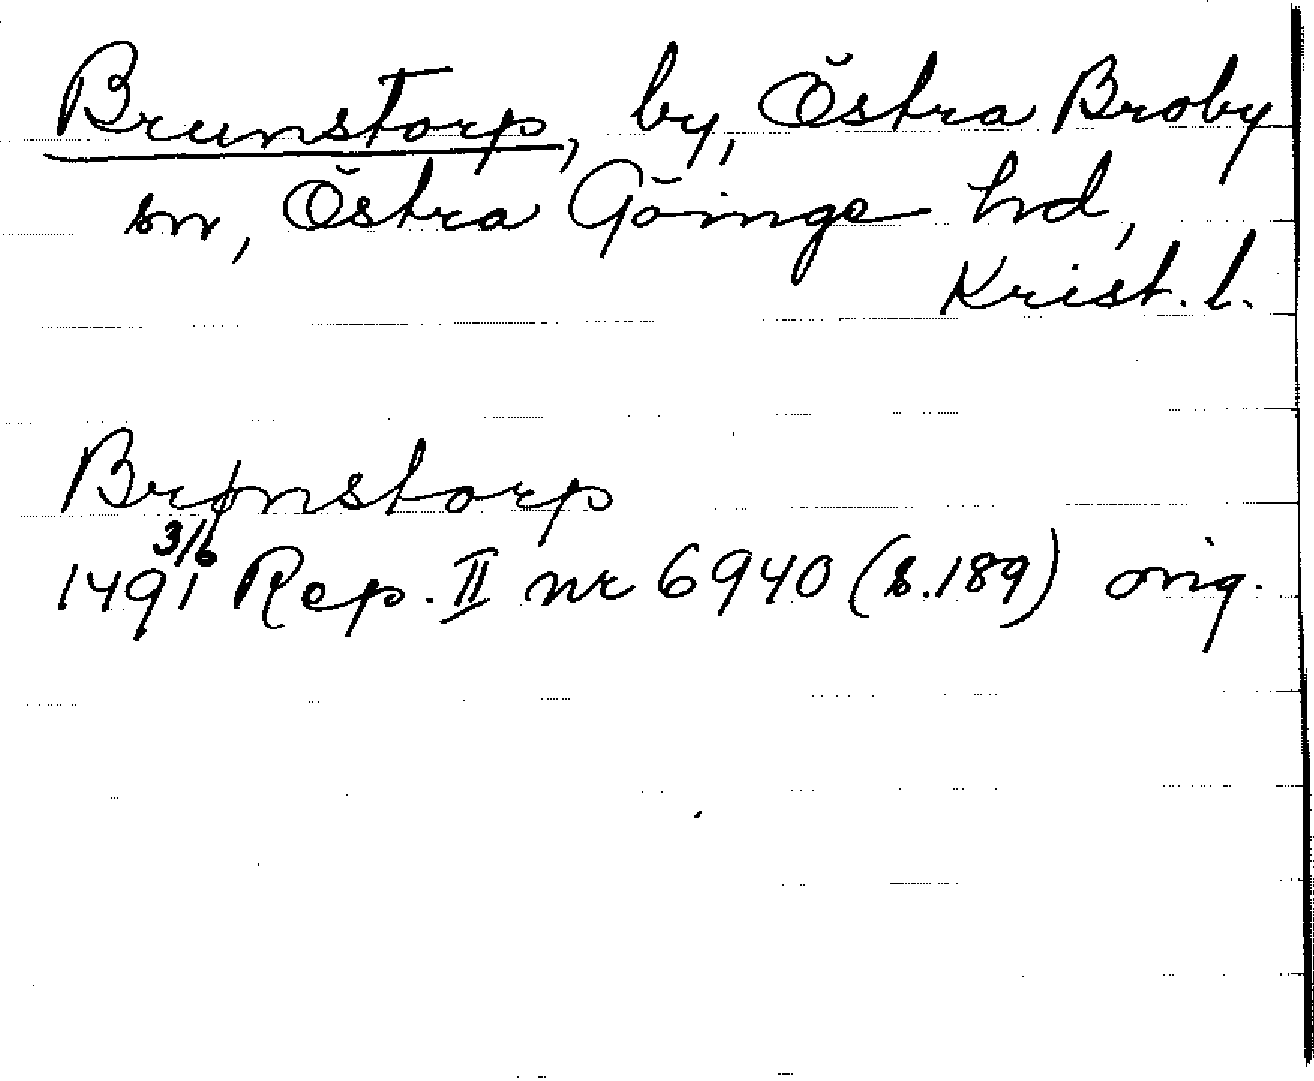 Brunstorp, by, Östra Broby
sn, Östra Göinge hd,
Krist. l.
Brønstorp
3/6
1491 Rep. II nr 6940 (s. 189) orig.